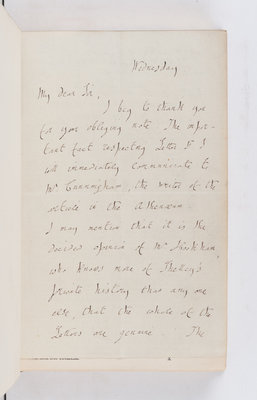 Wednesday
My dear Sir,
I beg to thank you
for your obliging note. The impor-
tant fact respecting Letter
will immediately communicate to
Mr Cunningham, the writer of the
article in the Athenæum.
I may mention that it is the
decided opinion of Mr
who knows more of Shelley's
private history than any one
else, that the whole of the
Letters are genuine. The